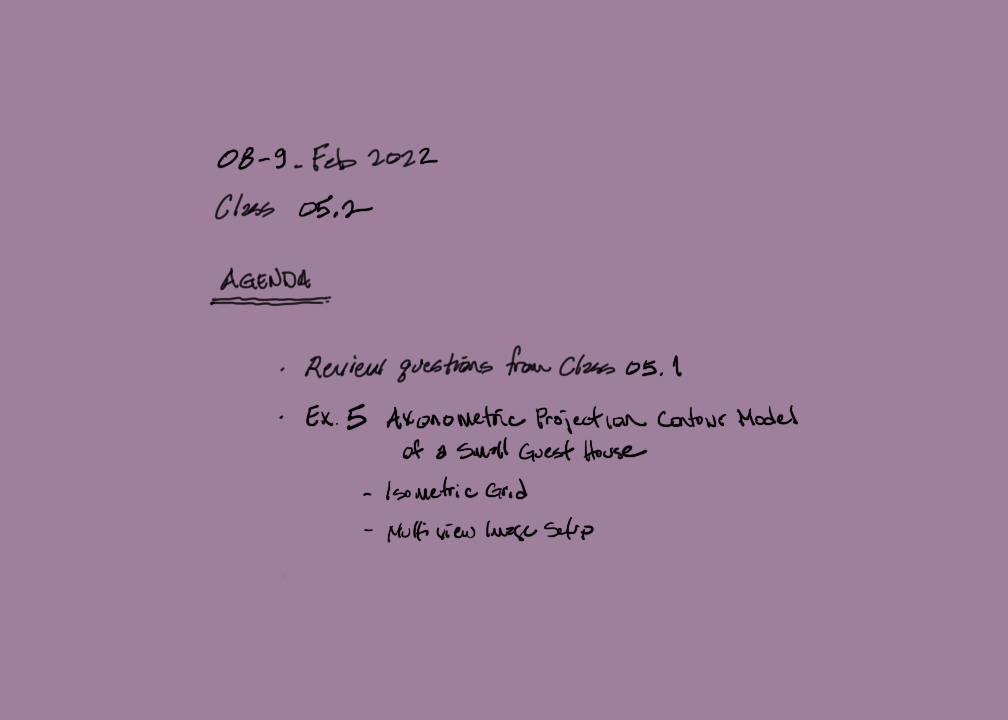 08-9_Feb 2022
Class 05.2
AGENDA
· Review questions from Class 05.1
· Ex. 5 Axonometric Projection Contour Model
of a Small Guest House
- Isometric Grid
- Multi view Image Setup